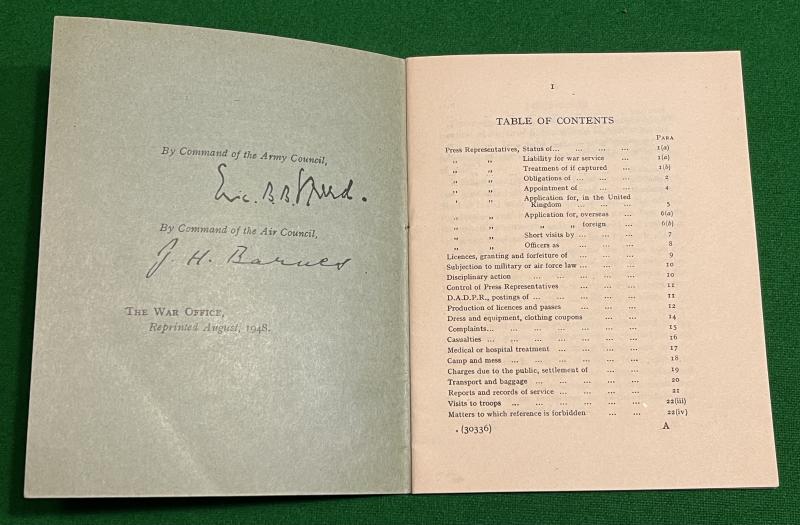 By Command of the Army Council,
Eric. B. B. Speed.
By Command of the Air Council,
J. H. Barnes
THE WAR OFFICE,
Reprinted August, 1948.
I
TABLE OF CONTENTS
PARA
Press Representatives, Status of... ... ... ... 1(a)
„ „ Liability for war service ... 1(a)
„ „ Treatment of if captured ... 1(b)
„ „ Obligations of ... ... ... 2
„ „ Appointment of ... ... 4
„ „ Application for, in the United
Kingdom ... ... ... 5
„ „ Application for, overseas ... 6(a)
„ „ „ „ foreign ... 6(b)
„ „ Short visits by ... ... ... 7
„ „ Officers as ... ... ... 8
Licences, granting and forfeiture of ... ... ... 9
Subjection to military or air force law ... ... ... 10
Disciplinary action ... ... ... ... ... 10
Control of Press Representatives ... ... ... 11
D.A.D.P.R., postings of ... ... ... ... ... 11
Production of licences and passes ... ... ... 12
Dress and equipment, clothing coupons ... ... 14
Complaints... ... ... ... ... ... ... 15
Casualties ... ... ... ... ... ... ... 16
Medical or hospital treatment ... ... ... ... 17
Camp and mess ... ... ... ... ... ... 18
Charges due to the public, settlement of ... ... 19
Transport and baggage ... ... ... ... ... 20
Reports and records of service ... ... ... ... 21
Visits to troops ... ... ... ... ... ... 22(iii)
Matters to which reference is forbidden ... ... 22(iv)
(30336) A